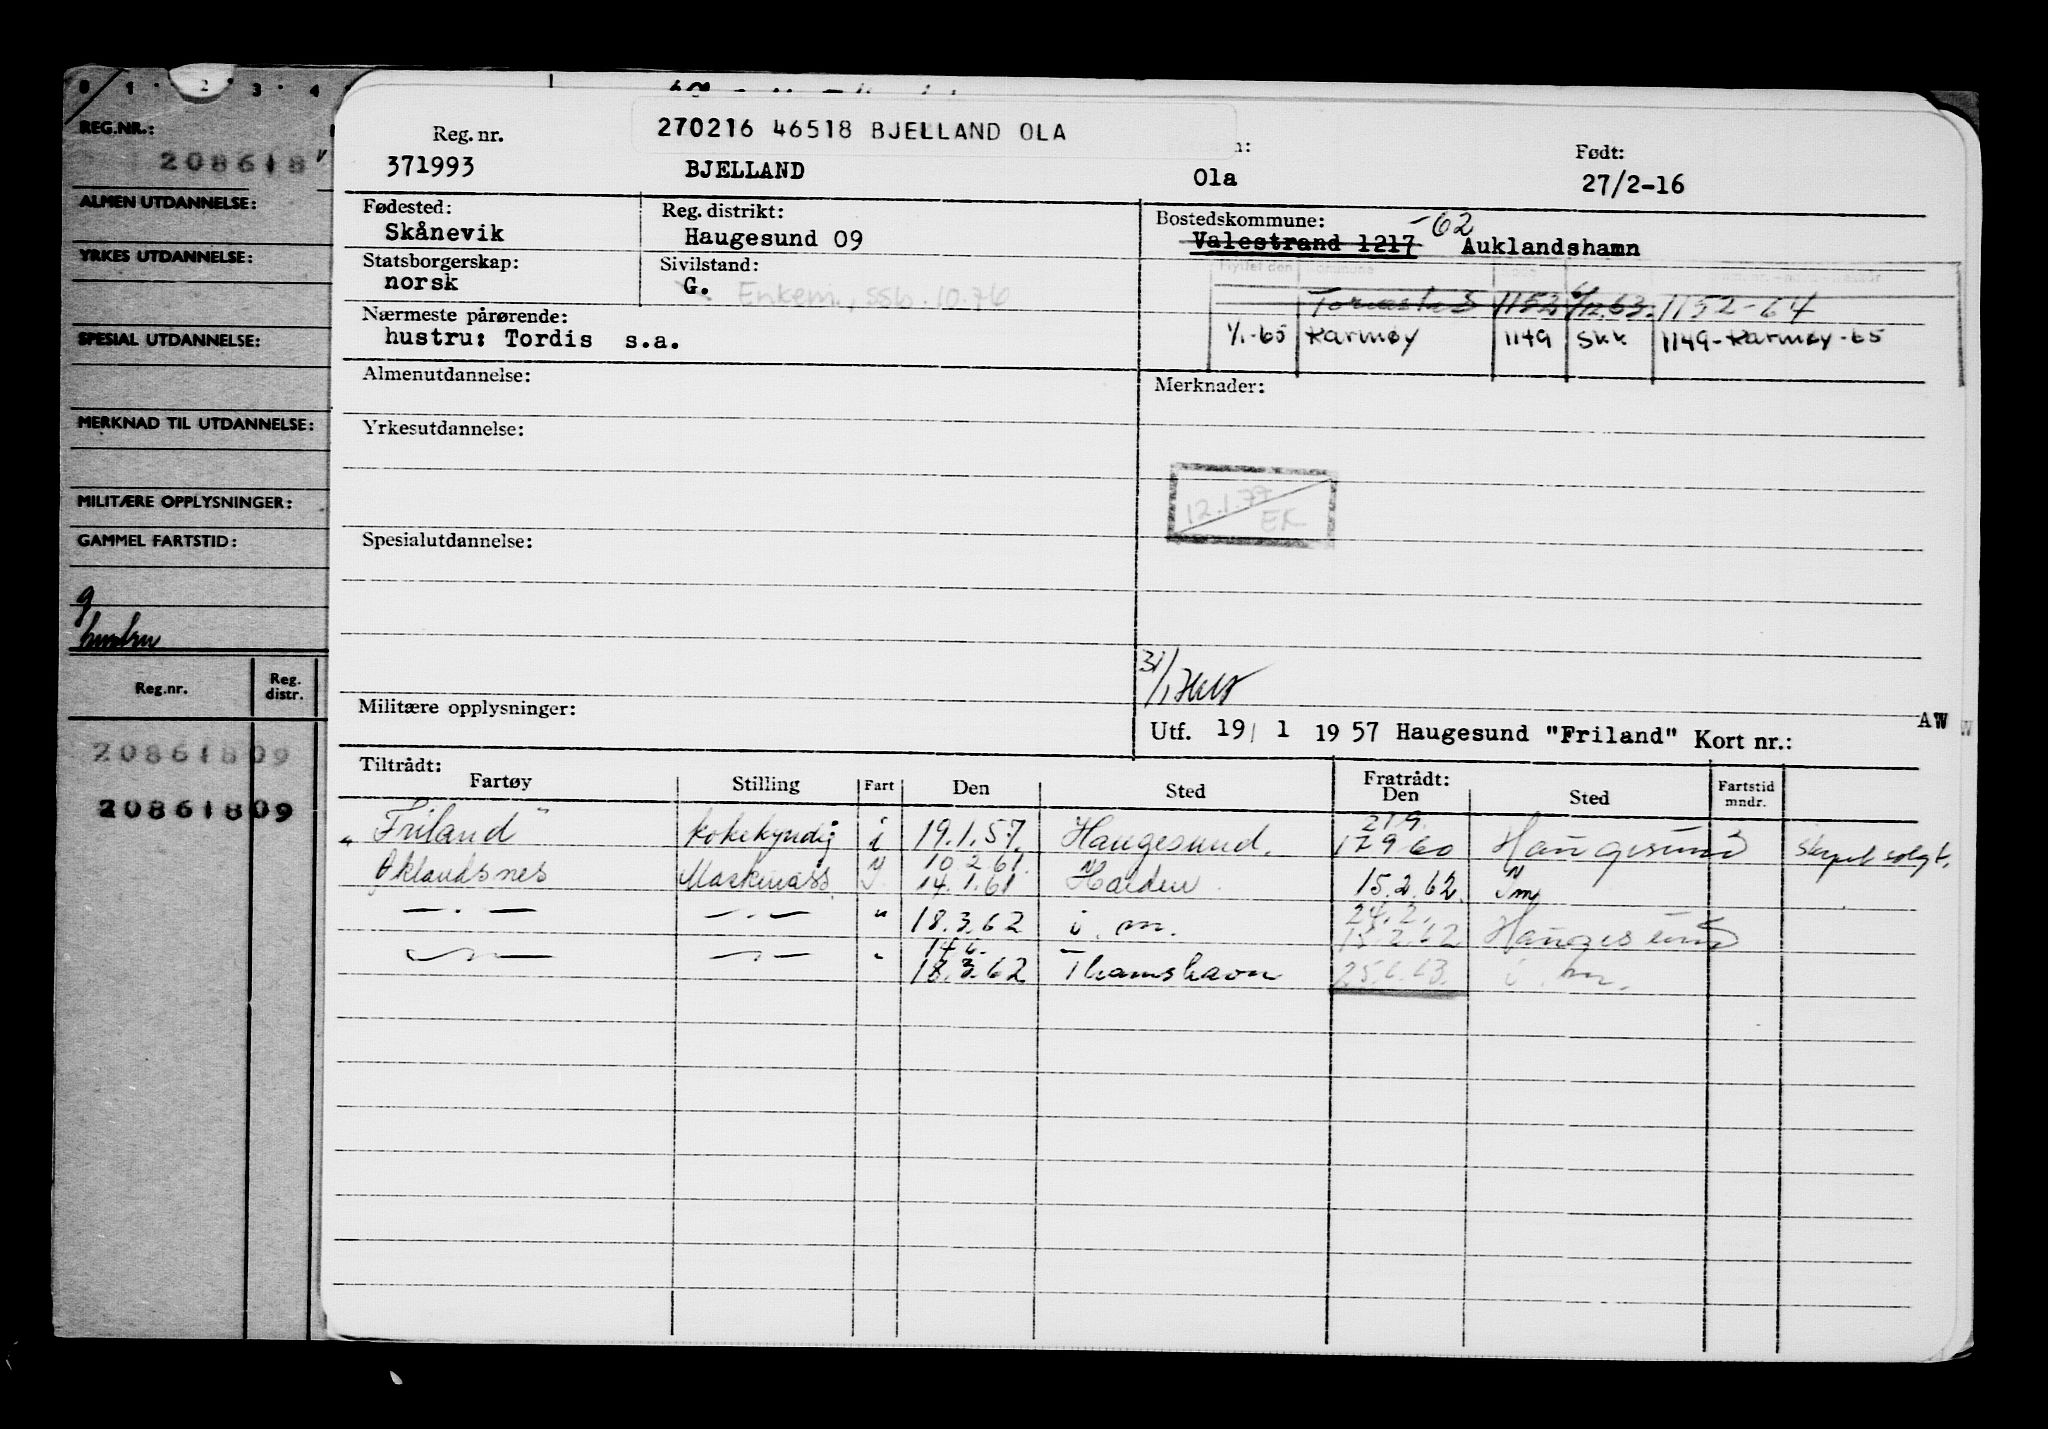 0 1 2 3 4
REG.NR.:
208618
ALMEN UTDANNELSE:
YRKES UTDANNELSE:
SPESIAL UTDANNELSE:
MERKNAD TIL UTDANNELSE:
MILITÆRE OPPLYSNINGER:
GAMMEL FARTSTID:
g
hustru
Reg.nr. Reg. distr.
208618 09
208618 09
270216 46518 BJELLAND OLA
Reg. nr. Født:
371993 BJELLAND Ola 27/2-16
Fødested: Reg. distrikt: Bostedskommune: -62
Skånevik Haugesund 09 Valestrand 1217 Auklandshamn
Statsborgerskap: Sivilstand: Flyttet den Kommune
norsk G. Enkem., SSb. 10.76
1153 63. 1152-64
Nærmeste pårørende:
hustru: Tordis s.a. 1/1-65 Karmøy 1149 Skk 1149-Karmøy-65
Almenutdannelse: Merknader:
Yrkesutdannelse:
12.1.77 EK
Spesialutdannelse:
31/1
Militære opplysninger:
Utf. 19/ 1 19 57 Haugesund "Friland" Kort nr.: AW
Tiltrådt: Fratrådt:
Fartøy Stilling Fart Den Sted Den Sted Fartstid mndr.
21.9.
"Friland" kokekyndig i 19.1.57. Haugesund. 17 9 60 Haugesund Skipet solgt.
10 2 61
Øklandsnes Maskinass. 14.1.61 Halden 15.2.62.
24.2.
— . — — . — " 18.3.62 i. m. 15 2 62 Haugesund
14 6.
18.3.62 Thamshavn i. m.